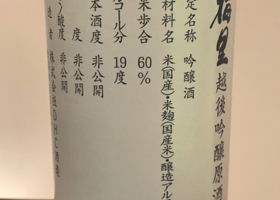 越後吟醸原酒
定名称 吟醸酒
材料名 米(国産)・米麹(国産米)・醸造アル
米歩合 60%
コール分 19度
本酒度 非公開
度 非公開
ノ酸度 非公開
造者 株式会社DHC酒造